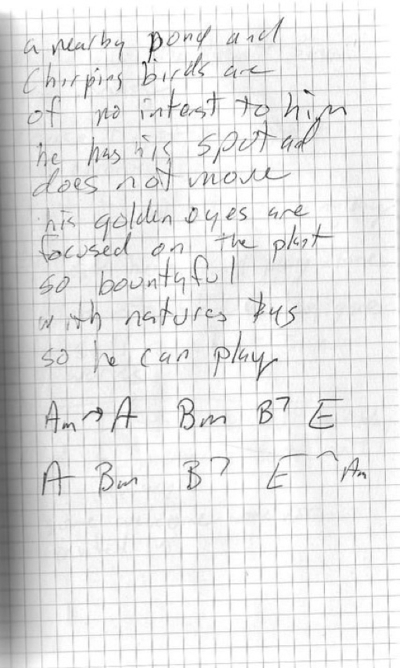 a nearby pond and
Chirping birds are
of no interst to him
he has his spot ad
does not move
his golden eyes are
focused on the plant
so bountyful
with natures
so he can play
Am → A Bm B7 E
A Bm B7 E Am